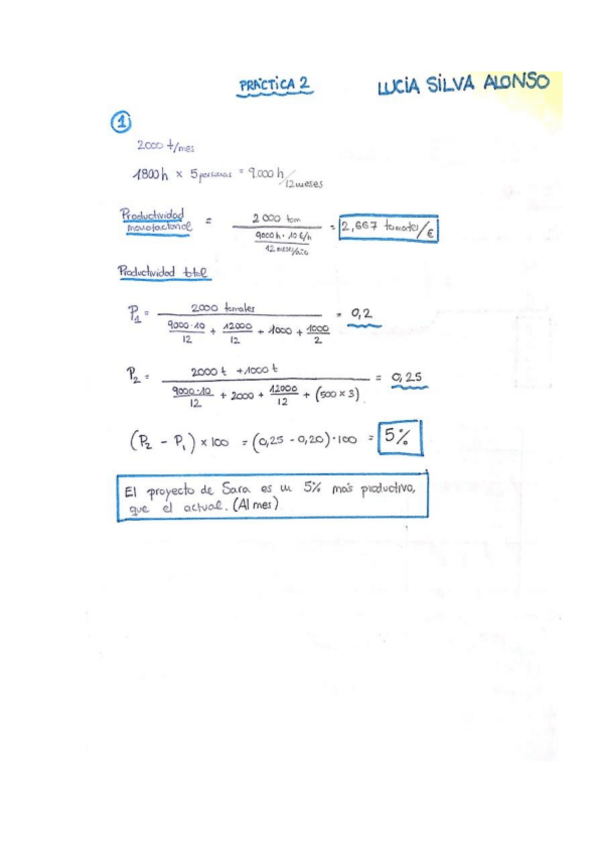 PRÁCTICA 2
LUCÍA SILVA ALONSO
1
2000 t/mes
1800h × 5 personas = 9.000 h/12 meses
Productividad monofactorial = 2000 tom / (9000h · 10 €/h / 12 meses/año) = 2,667 tomates/€
Productividad total
P1 = 2000 tomates / (9000·10/12 + 12000/12 + 1000 + 1000/2) = 0,2
P2 = 2000 t + 1000 t / (9000·10/12 + 2000 + 12000/12 + (500 × 3)) = 0,25
(P2 - P1) × 100 = (0,25 - 0,20) · 100 = 5%
El proyecto de Sara es un 5% más productivo,
que el actual. (Al mes)